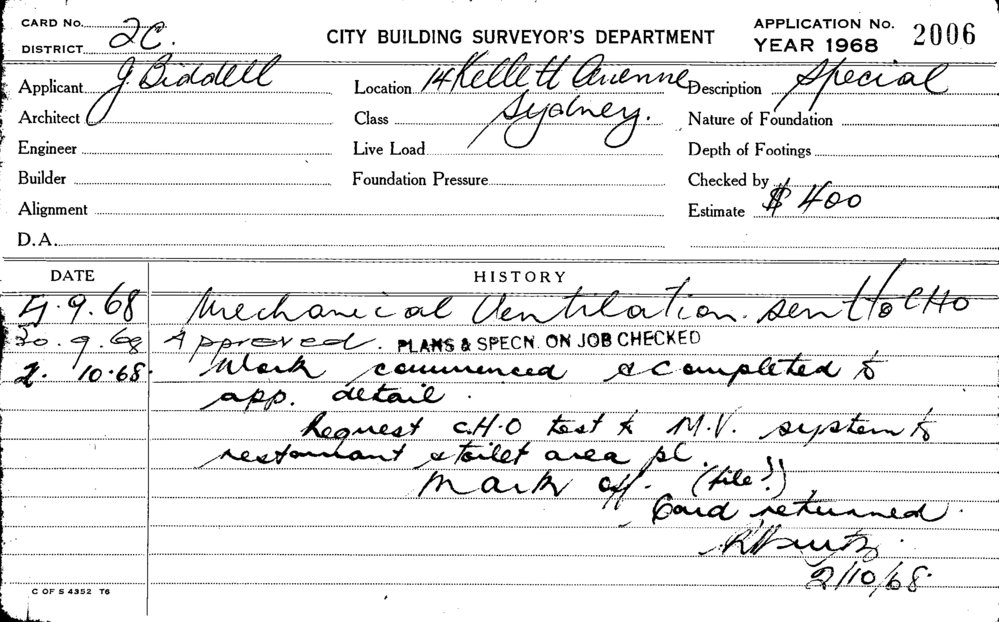 CARD No.
DISTRICT 2C.
CITY BUILDING SURVEYOR'S DEPARTMENT
APPLICATION No.
YEAR 1968 2006
Applicant J. Biddell
Location 14 Kellett Avenue
Description Special
Architect
Class Sydney.
Nature of Foundation
Engineer
Live Load
Depth of Footings
Builder
Foundation Pressure
Checked by
Alignment
Estimate $ 400
D.A.
DATE HISTORY
4.9.68 Mechanical Ventilation. sent to CHO
20.9.68 Approved. PLANS & SPECN. ON JOB CHECKED
2. 10.68. Work commenced & completed to
app. detail.
Request C.H.O test to M.V. system to
restaurant & toilet area pl.
Mark off. (file!)
Card returned.
2/10/68.
C OF S 4352 T6